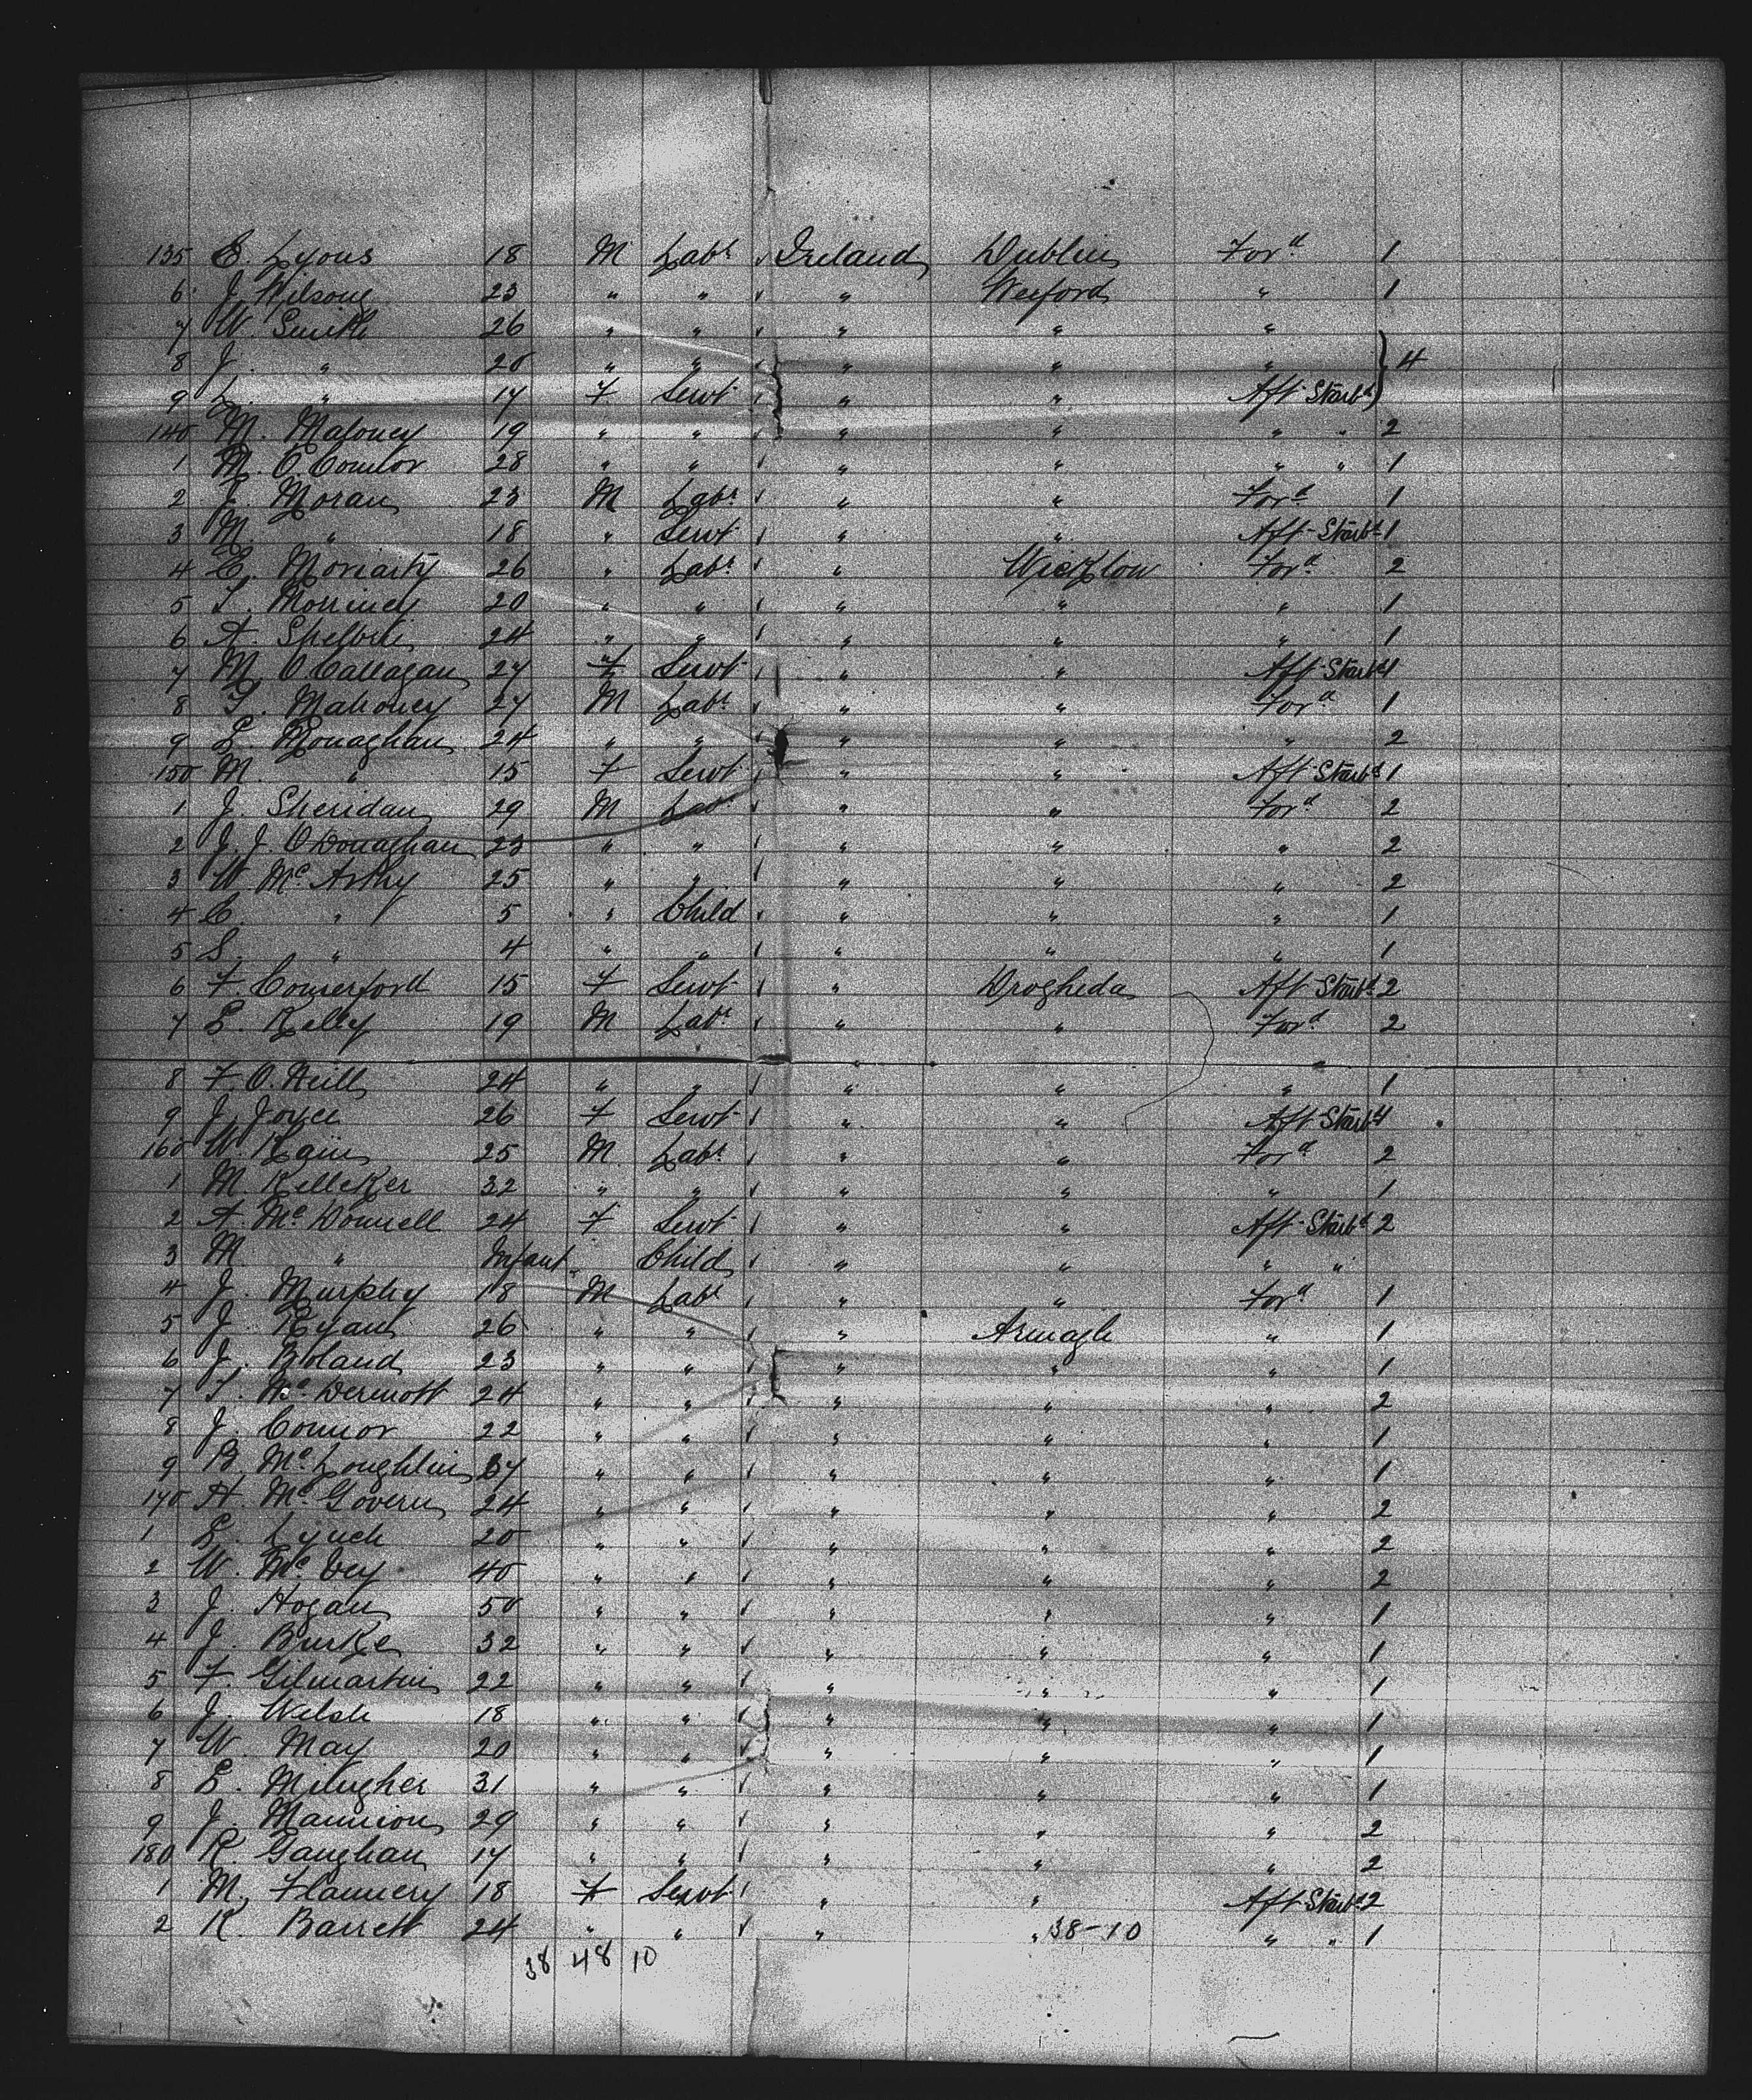 135 E. Lyons 18 M Labr ✓ Ireland Dublin Ford 1
6 J. Wilson 23 " " ✓ " Wexford " 1
7 W. Smith 26 " " ✓ " " "
8 J. " 20 " " ✓ " " " } 4
9 L. " 17 F Servt ✓ " " Aft Starbd
140 M. Maloney 19 " " ✓ " " " " 2
1 M. O'Connor 28 " " ✓ " " " " 1
2 J. Moran 23 M Labr ✓ " " Ford 1
3 M. " 18 " Servt ✓ " " Aft Starbd 1
4 C. Moriarty 26 " Labr ✓ " Wicklow Ford 2
5 T. 20 " " ✓ " " " 1
6 A. 24 " " ✓ " " " 1
7 M. O'Callagan 27 F Servt ✓ " " Aft Starbd 1
8 T. Mahoney 27 M Labr ✓ " " Ford 1
9 L. Monaghan 24 " " ✓ " " " 2
150 M. " 15 F Servt ✓ " " Aft Starbd 1
1 J. Sheridan 29 M Labr ✓ " " Ford 2
2 J. J. O'Donaghan 23 " " ✓ " " " 2
3 W. Mc Arthy 25 " " ✓ " " " 2
4 C. " 5 " Child ✓ " " " 1
5 S. " 4 " " ✓ " " " 1
6 F. Comerford 15 F Servt ✓ " Drogheda Aft Starbd 2
7 E. Kelly 19 M Labr ✓ " " Ford 2
8 F. O. Neill 24 " " ✓ " " " 1
9 J. Joyce 26 F Servt ✓ " " Aft Starbd 1
160 W. Kain 25 M Labr ✓ " " Ford 2
1 M Kelleker 32 " " ✓ " " " 1
2 A. Mc Donnell 24 F Servt ✓ " " Aft Starbd 2
3 M. " Infant " Child ✓ " " " "
4 J. Murphy 18 M Labr ✓ " " Ford 1
5 J. Ryan 26 " " ✓ " Armagh " 1
6 J. Boland 23 " " ✓ " " " 1
7 T. Mc Dermott 24 " " ✓ " " " 2
8 J. Connor 22 " " ✓ " " " 1
9 B. Mc Loughlin 37 " " ✓ " " " 1
170 A. Mc Govern 24 " " ✓ " " " 2
1 E. Lynch 20 " " ✓ " " " 2
2 W. Mc Vey 40 " " ✓ " " " 2
3 J. Hogan 50 " " ✓ " " " 1
4 J. Burke 32 " " ✓ " " " 1
5 F. Gilmartin 22 " " ✓ " " " 1
6 J. Welsh 18 " " ✓ " " " 1
7 W. May 20 " " ✓ " " " 1
8 E. 31 " " ✓ " " " 1
9 J. Mannion 29 " " ✓ " " " 2
180 R. Gaughan 17 " " ✓ " " " 2
1 M. Flannery 18 F Servt ✓ " " Aft Starbd 2
2 K. Barrett 24 " " ✓ " " 38-10 " " 1
38 48 10